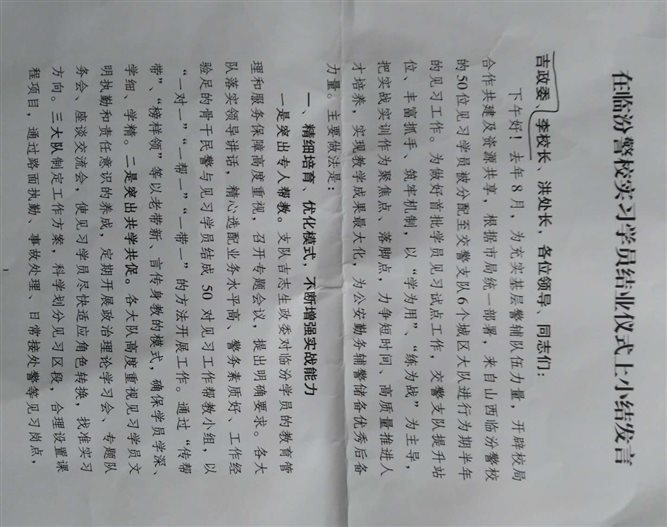 在临汾警校实习学员结业仪式上小结发言
吉政委、李校长、洪处长，各位领导、同志们：
下午好！去年8月，为充实基层警辅队伍力量，开辟校局
合作共建及资源共享，根据市局统一部署，来自山西临汾警校
的50位见习学员被分配至交警支队6个城区大队进行为期半年
的见习工作。为做好首批学员见习试点工作，交警支队提升站
位、丰富抓手、筑牢机制，以“学为用”、“练为战”为主导，
把实战实训作为聚焦点、落脚点，力争短时间、高质量推进人
才培养，实现教学成果最大化，为公安勤务辅警储备优秀后备
力量。主要做法是：
一、精细培育、优化模式，不断增强实战能力
一是突出专人帮教。支队吉志生政委对临汾学员的教育管
理和服务保障高度重视，召开专题会议，提出明确要求。各大
队落实领导讲话，精心选配业务水平高、警务素质好、工作经
验足的骨干民警与见习学员结成 50 对见习工作帮教小组，以
“一对一”“一帮一”“一带一”的方法开展工作。通过“传帮
带”、“榜样领”等以老带新、言传身教的模式，确保学员学深、
学细、学精。二是突出共学共促。各大队高度重视见习学员文
明执勤和责任意识的养成，定期开展政治理论学习会、专题队
务会、座谈交流会，使见习学员尽快适应角色转换，找准实习
方向。三大队制定工作方案，科学划分见习区段，合理设置课
程项目，通过路面执勤、事故处理、日常接处警等见习岗点，
1